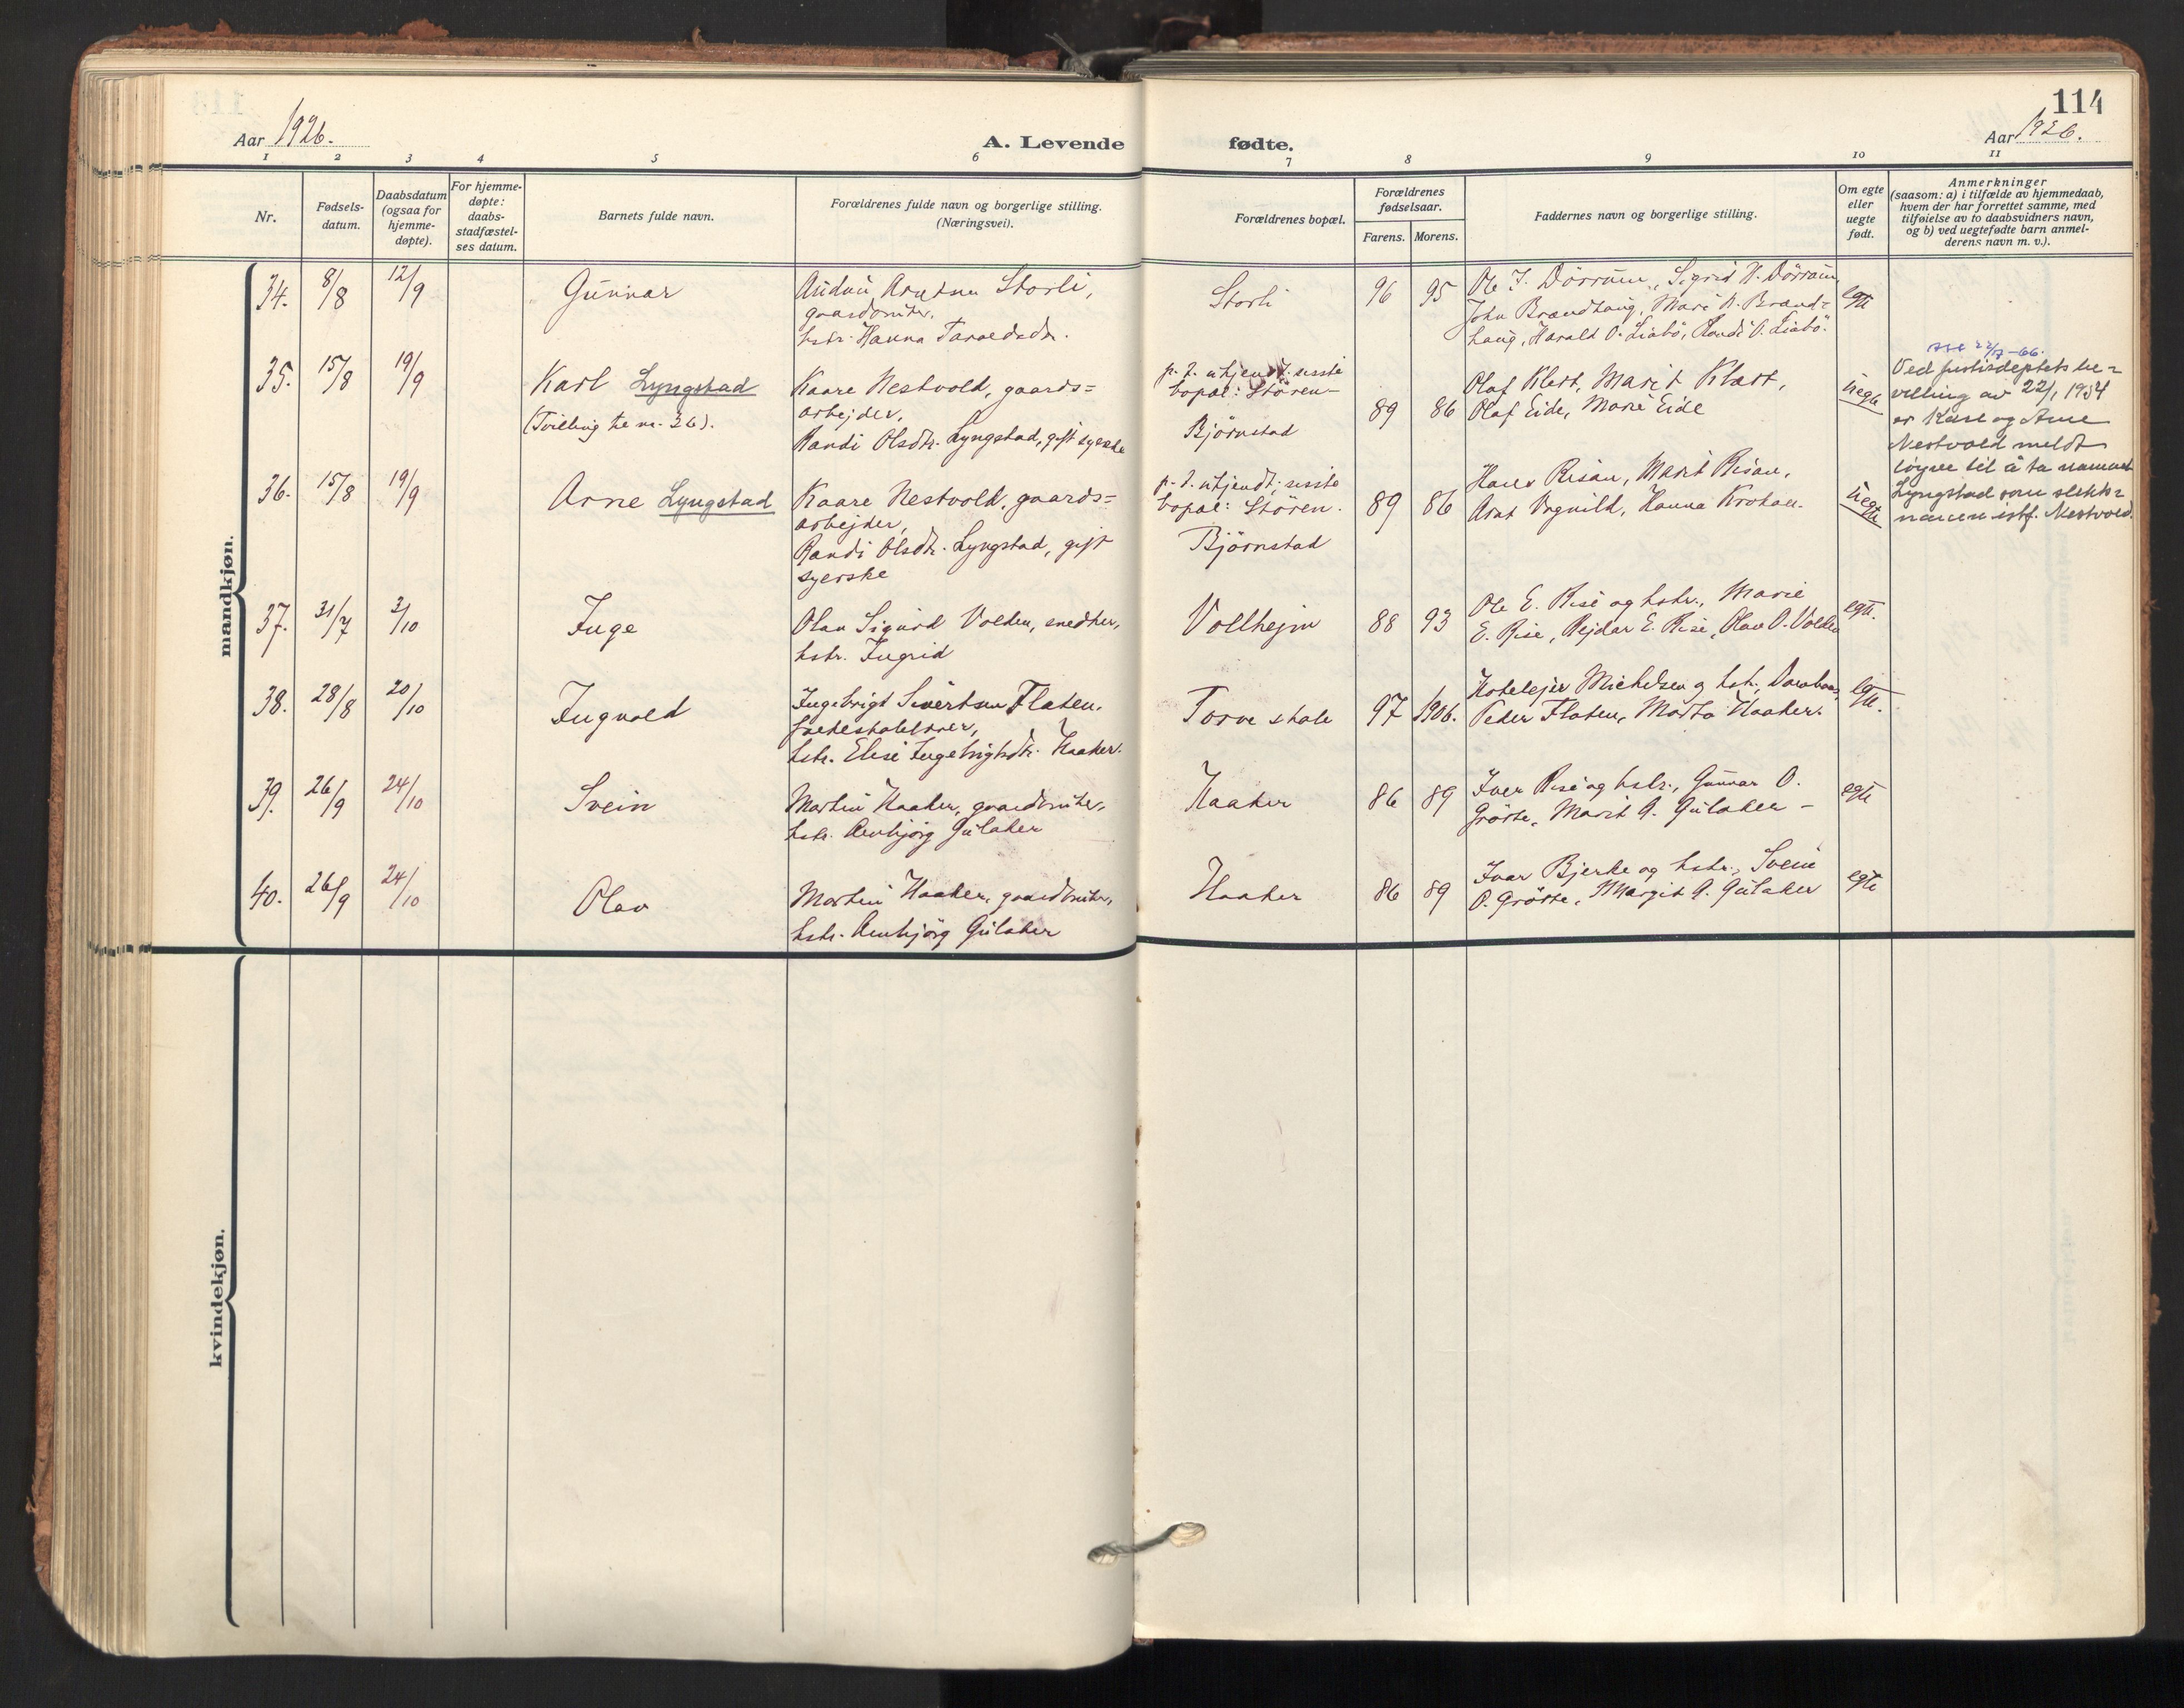 114
Aar 1926.
A. Levende fødte.
Aar 1926.
1 2 3 4 5 6 7 8 9 10 11
Nr.
Fødsels-
datum.
Daabsdatum
(ogsaa for
hjemme-
døpte).
For hjemme-
døpte:
daabs-
stadfæstel-
ses datum.
Barnets fulde navn.
Forældrenes fulde navn og borgerlige stilling.
(Næringsvei).
Forældrenes bopæl.
Forældrenes
fødselsaar.
Farens. Morens.
Faddernes navn og borgerlige stilling.
Om egte
eller
uegte
født.
Anmerkninger
(saasom: a) i tilfælde av hjemmedaab,
hvem der har forrettet samme, med
tilføielse av to daabsvidners navn,
og b) ved uegtefødte barn anmel-
derens navn m. v.).
mandkjøn.
34. 8/8 12/9
Gunnar
Storli,
gaardbruker,
hstr. Hanna
Storli
96 95
Ole J. Dörrum, Sigrid N. Dörrum,
John Brandhaug, Mari N. Brand=
haug, Harald O. Liabö, Randi O. Liabö.
egte
35. 15/8 19/9
Karl Lyngstad
(Tvilling til nr. 36).
Kaare Nestvold, gaards=
arbejder,
Randi Olsdtr. Lyngstad, gift syerske
p. t. utjendt, sisste
bopæl: Stören
Björnstad
89 86
Olaf Klett, Marit Klett,
Olaf Eide, Marie Eide
uegte
22/7-66.
Ved justisdeptets be=
villing av 22/1 1934
er Karl og Arne
Nestvold meldt
löyve til å ta namnet
Lyngstad som slekts=
namn istf. Nestvold.
36. 15/8 19/9
Arne Lyngstad
Kaare Nestvold, gaards=
arbejder,
Randi Olsdtr. Lyngstad, gift
syerske
p. t. utjendt, sisste
bopæl: Stören.
Björnstad
89 86
Hans Risan, Marit Risan,
Arnt Vognild, Hanna Krokan.
uegte
37. 31/7 3/10
Inge
Olav Sigurd Volden, snedker,
hstr. Ingrid
Vollhejm
88 93
Ole E. Rise og hstr., Marie
E. Rise, Rejdar E. Rise, Olav O. Volden
egte.
38. 28/8 20/10
Ingvald
Ingebrigt Sivertsen Flaten,
hstr. Elise Ingebrigtsdtr. Haaker.
Torve
97 1906.
Hotelejer Michelsen og hstr.,
Peder Flaten, Marta Haaker.
egte.
39. 26/9 24/10
Svein
Martin Haaker, gaardbruker,
hstr. Arnbjörg Gulaker
Haaker
86 89
Iver Rise og hstr., Gunnar O.
Grötte, Marit A. Gulaker –
egte
40. 26/9 24/10
Olav
Martin Haaker, gaardbruker,
hstr. Arnbjörg Gulaker
Haaker
86 89
Ivar Bjerke og hstr., Svein
O. Grötte, Margit A. Gulaker
egte
kvindekjøn.